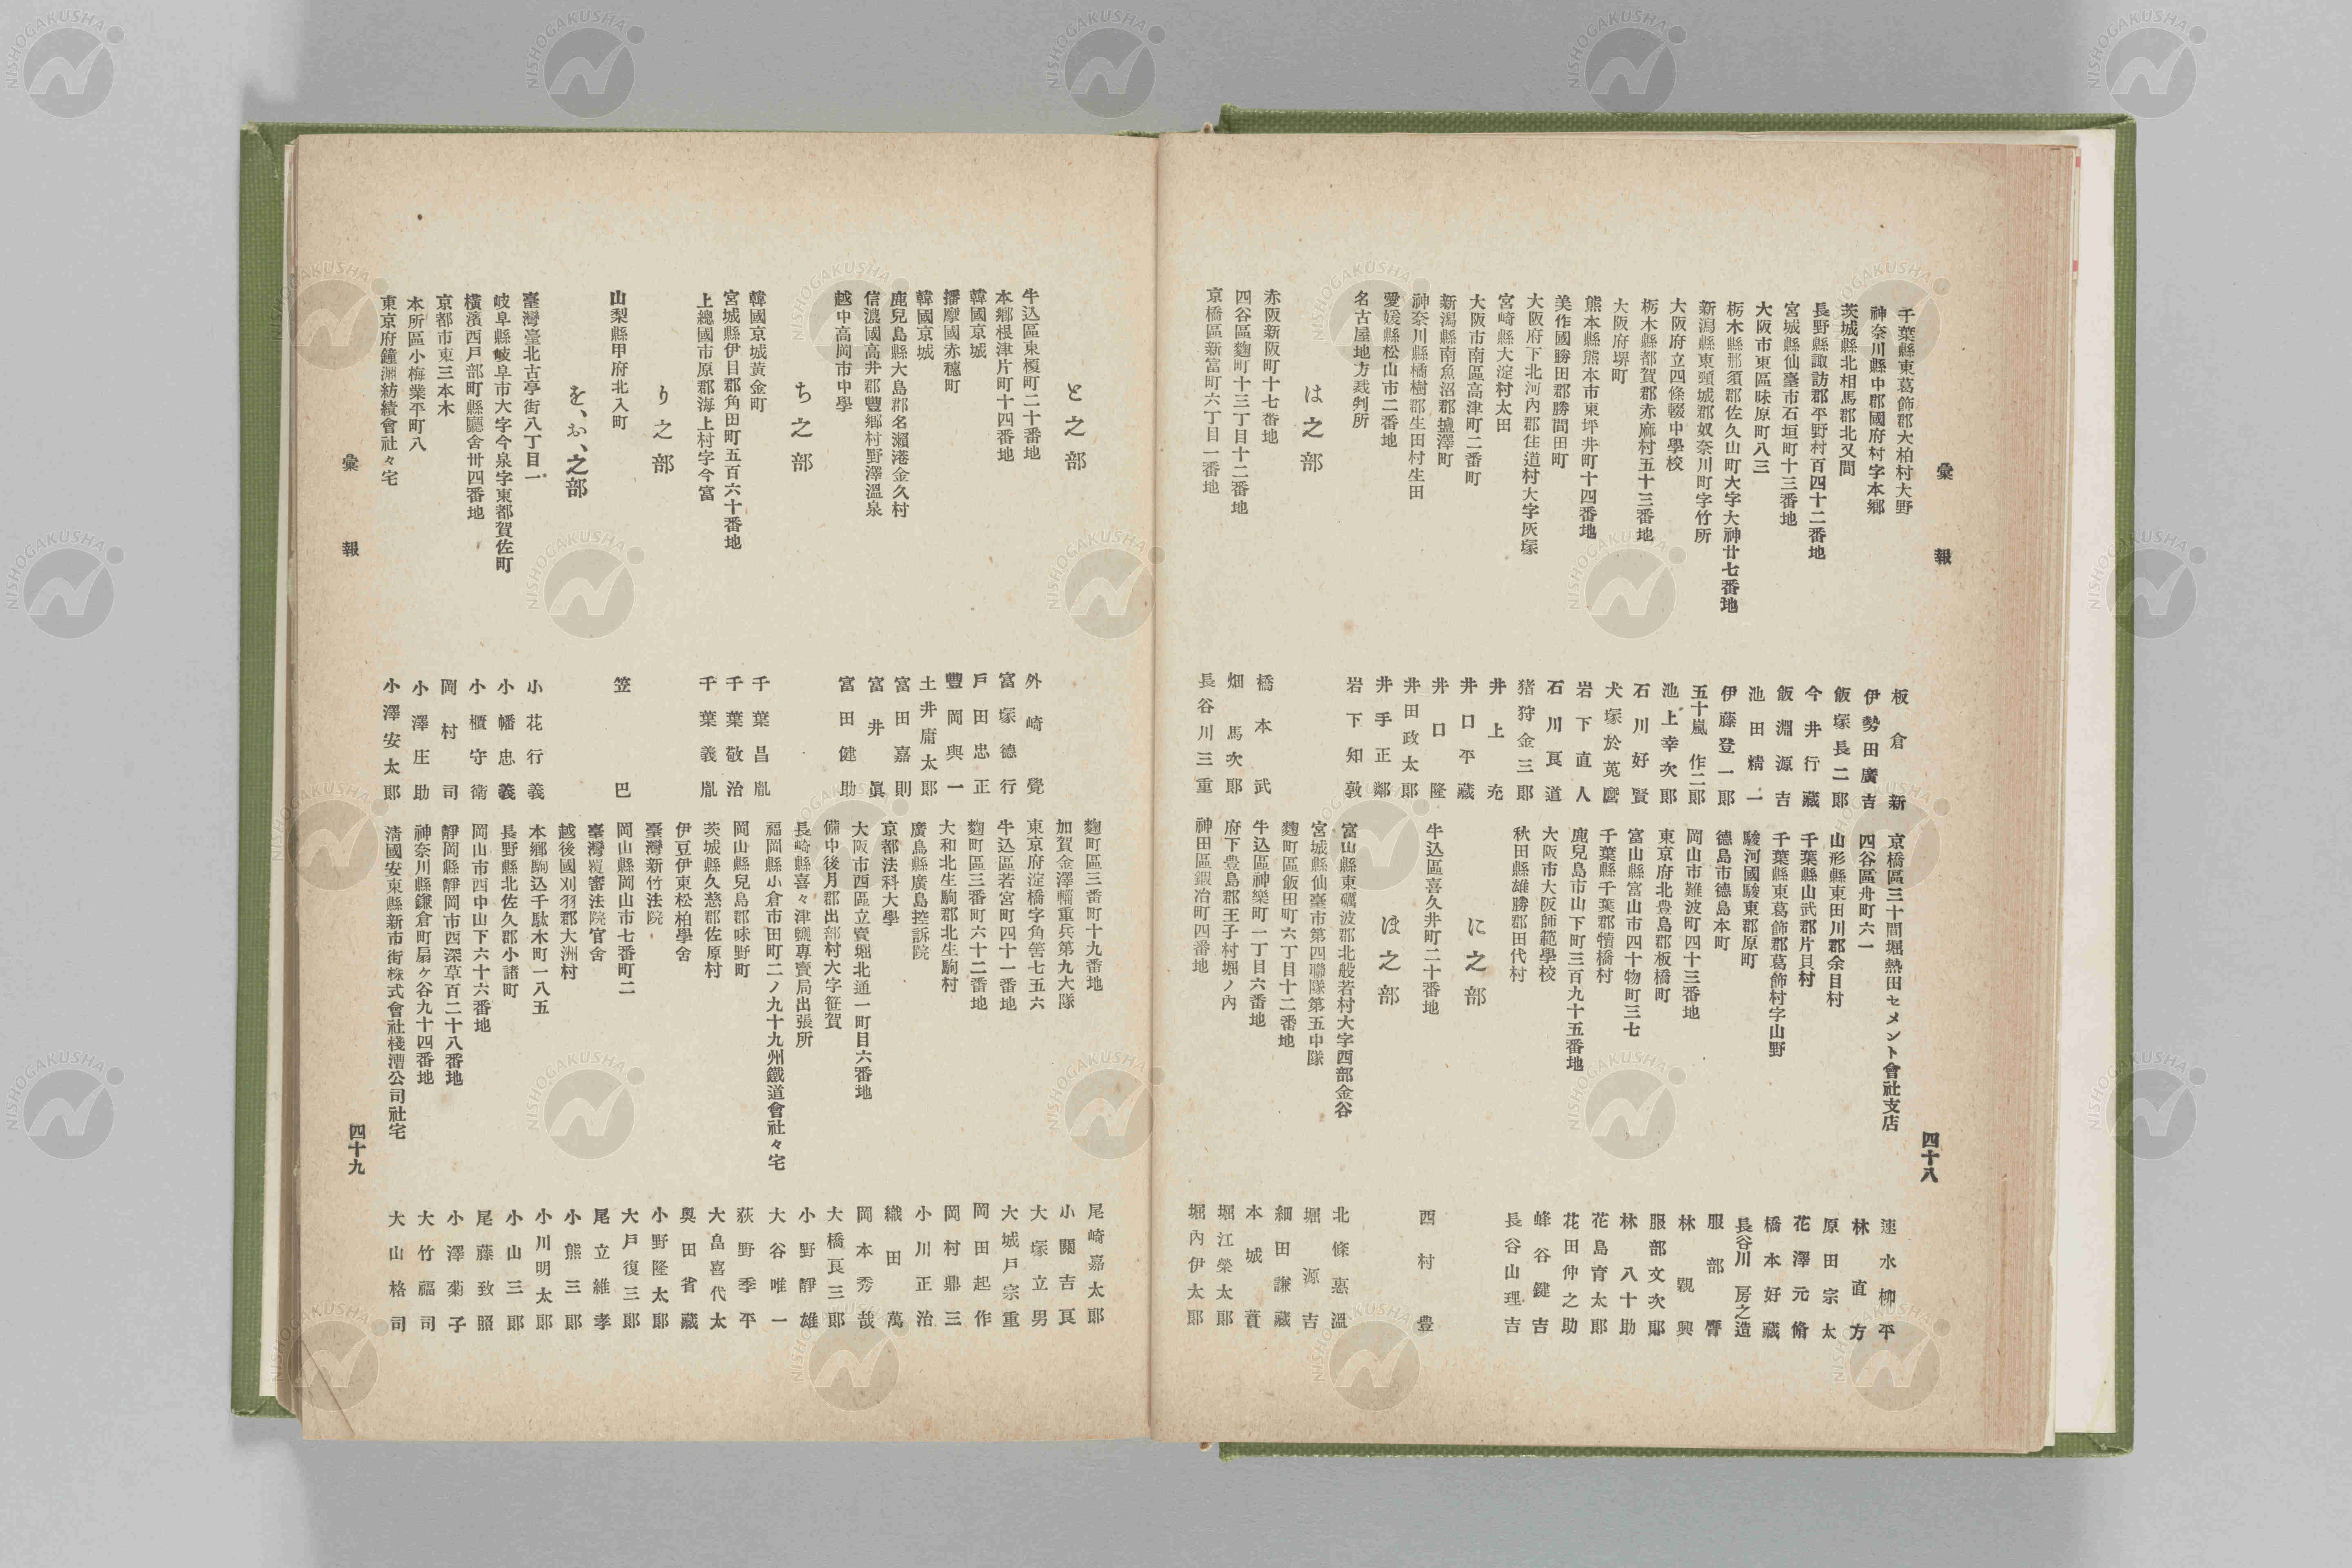 彙報
四十八
千葉縣東葛飾郡大柏村大野 板倉新
神奈川縣中郡國府村字本鄉 伊勢田廣吉
茨城縣北相馬郡北文間 飯塚長二郎
長野縣諏訪郡平野村百四十二番地 今井行藏
宮城縣仙臺市石垣町十三番地 飯淵源吉
大阪市東區味原町八三 池田精一
栃木縣那須郡佐久山町大字大神廿七番地 伊藤登一郎
新潟縣東頸城郡奴奈川町字竹所 五十嵐作二郎
大阪府立四條畷中學校 池上幸次郎
栃木縣都賀郡赤麻村五十三番地 石川好賢
大阪府堺町 犬塚於莵麿
熊本縣熊本市東坪井町十四番地 岩下直人
美作國勝田郡勝間田町 石川良道
大阪府下北河內郡住道村大字灰塚 猪狩金三郎
宮崎縣大淀村太田 井上充
大阪市南區高津町二番町 井口平藏
新潟縣南魚沼郡鹽澤町 井口隆
神奈川縣橘樹郡生田村生田 井田政太郎
愛媛縣松山市二番地 井手正鄰
名古屋地方裁判所 岩下知敦
は之部
赤阪新阪町十七番地 橋本武
四谷區麴町十三丁目十二番地 畑馬次郎
京橋區新富町六丁目一番地 長谷川三重
京橋區三十間堀熱田セメント會社支店 速水柳平
四谷區舟町六一 林直方
山形縣東田川郡余目村 原田宗太
千葉縣山武郡片貝村 花澤元脩
千葉縣東葛飾郡葛飾村字山野 橋本好藏
駿河國駿東郡原町 長谷川房之造
德島市德島本町 服部膺
岡山市難波町四十三番地 林親興
東京府北豊島郡板橋町 服部文次郎
富山縣富山市四十物町三七 林八十助
千葉縣千葉郡犢橋村 花島育太郎
鹿兒島市山下町三百九十五番地 花田仲之助
大阪市大阪師範學校 蜂谷鍵吉
秋田縣雄勝郡田代村 長谷山理吉
に之部
牛込區喜久井町二十番地 西村豊
ほ之部
富山縣東礪波郡北般若村大字西部金谷 北條惠溫
宮城縣仙臺市第四聯隊第五中隊 堀源吉
麴町區飯田町六丁目十二番地 細田謙藏
牛込區神樂町一丁目六番地 本城蕡
府下豊島郡王子村堀ノ內 堀江榮太郎
神田區鍛冶町四番地 堀內伊太郎
と之部
牛込區東榎町二十番地 外崎覺
本鄉根津片町十四番地 富塚德行
韓國京城 戶田忠正
播摩國赤穗町 豐岡與一
韓國京城 土井庸太郎
鹿兒島縣大島郡名瀨港金久村 富田嘉則
信濃國高井郡豐鄉村野澤溫泉 富井眞
越中高岡市中學 富田健助
ち之部
韓國京城黃金町 千葉昌胤
宮城縣伊目郡角田町五百六十番地 千葉敬治
上總國市原郡海上村字今富 千葉義胤
り之部
山梨縣甲府北入町 笠巴
を、お、之部
臺灣臺北古亭街八丁目一 小花行義
岐阜縣岐阜市大字今泉字東都賀佐町 小幡忠義
橫濱西戶部町縣廳舍卅四番地 小櫃守衛
京都市東三本木 岡村司
本所區小梅業平町八 小澤庄助
東京府鐘淵紡績會社々宅 小澤安太郎
麴町區三番町十九番地 尾崎嘉太郎
加賀金澤輜重兵第九大隊 小關吉良
東京府淀橋字角筈七五六 大塚立男
牛込區若宮町四十一番地 大城戶宗重
麴町區三番町六十二番地 岡田起作
大和北生駒郡北生駒村 岡村鼎三
廣島縣廣島控訴院 小川正治
京都法科大學 織田萬
大阪市西區立賣堀北通一町目六番地 岡本秀哉
備中後月郡出部村大字笹賀 大橋良三郎
長崎縣喜々津專賣局出張所 小野靜雄
福岡縣小倉市田町二ノ九十九州鐵道會社々宅 大谷唯一
岡山縣兒島郡味野町 荻野季平
茨城縣久慈郡佐原村 大畠喜代太
伊豆伊東松柏學舍 奧田省藏
臺灣新竹法院 小野隆太郎
岡山縣岡山市七番町二 大戶復三郎
臺灣覆審法院官舍 尾立維孝
越後國刈羽郡大洲村 小熊三郎
本鄉駒込千駄木町一八五 小川明太郎
長野縣北佐久郡小諸町 小山三郎
岡山市西中山下六十六番地 尾藤致照
靜岡縣靜岡市西深草百二十八番地 小澤菊子
神奈川縣鎌倉町扇ヶ谷九十四番地 大竹福司
淸國安東縣新市街株式會社棧漕公司社宅 大山格司
彙報
四十九